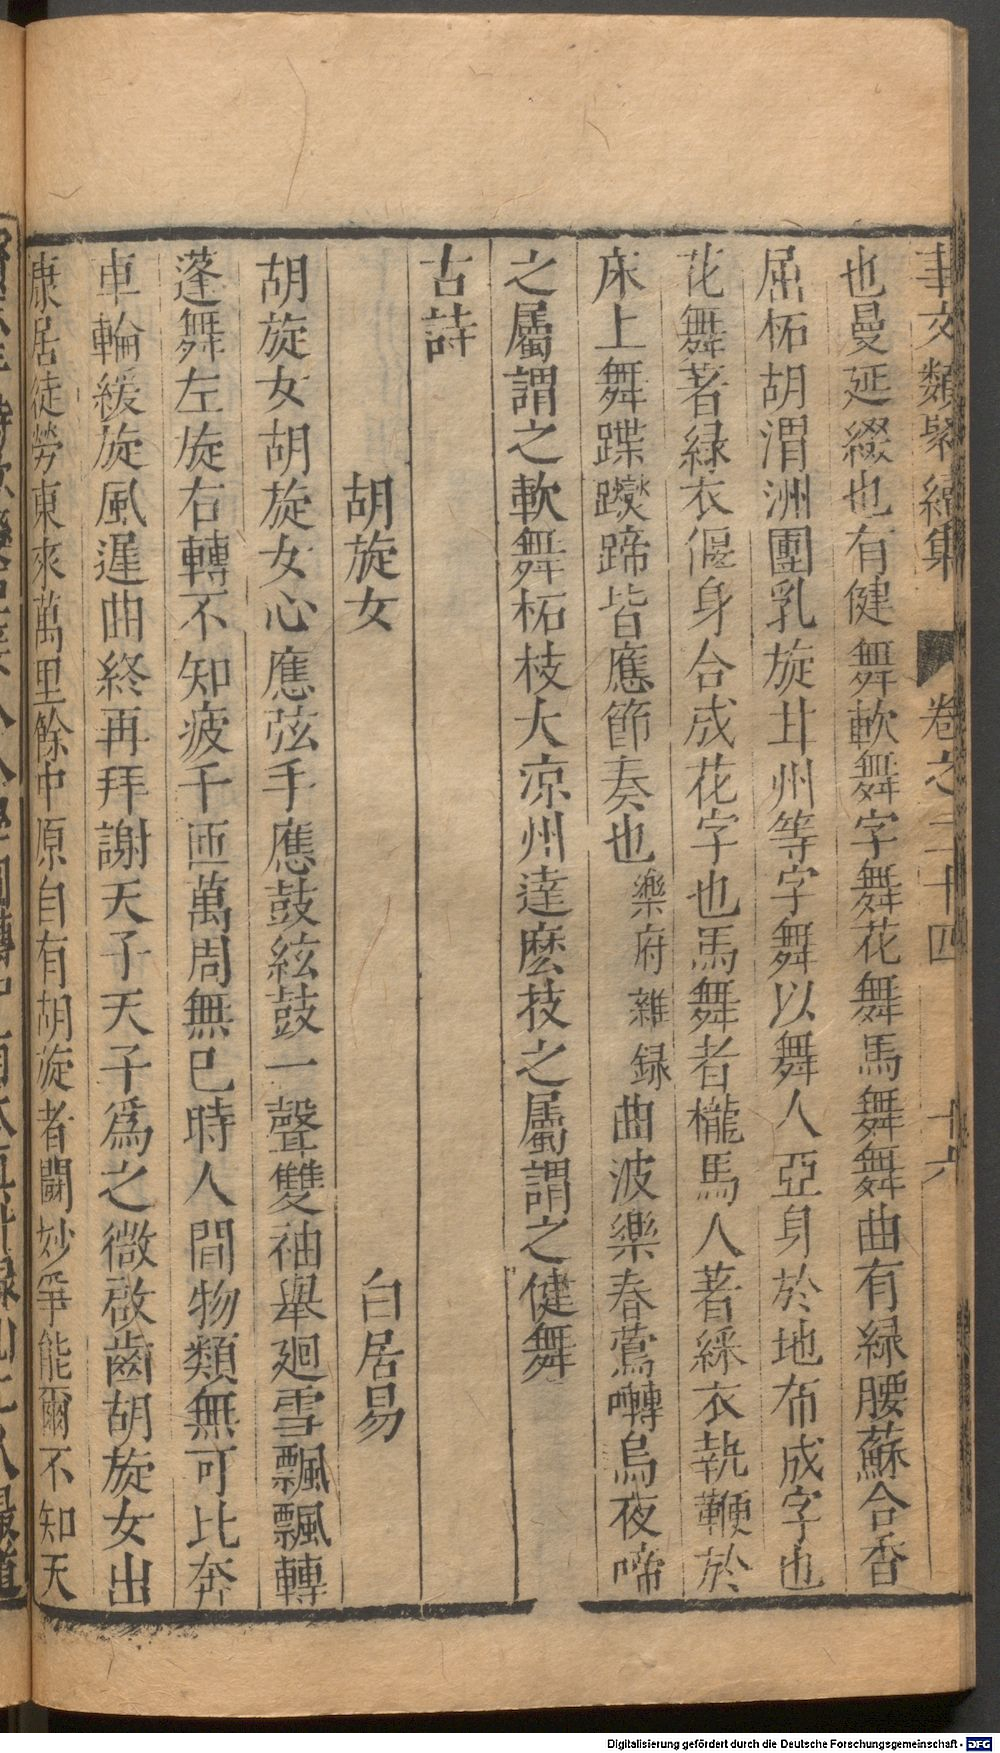 事文類聚續集 卷之二十四 十六
也曼延綴也有健舞軟舞字舞花舞馬舞舞曲有緑腰蘇合香
屈柘胡渭洲團乳旋甘州等字舞以舞人亞身於地布成字也
花舞著緑衣偃身合成花字也馬舞者櫳馬人著綵衣執鞭於
床上舞蹀躞蹄皆應節奏也樂府雜録曲波樂春鶯囀烏夜啼
之屬謂之軟舞柘枝大凉州達麽技之屬謂之健舞
古詩
胡旋女 白居易
胡旋女胡旋女心應弦手應鼓絃鼓一聲雙袖舉廻雪飄飄轉
蓬舞左旋右轉不知疲千匝萬周無已時人間物類無可比奔
車輪緩旋風遲曲終再拜謝天子天子爲之微啟齒胡旋女出
康居徒勞東來萬里餘中原自有胡旋者鬪妙爭能爾不知天
Digitalisierung gefördert durch die Deutsche Forschungsgemeinschaft - DFG